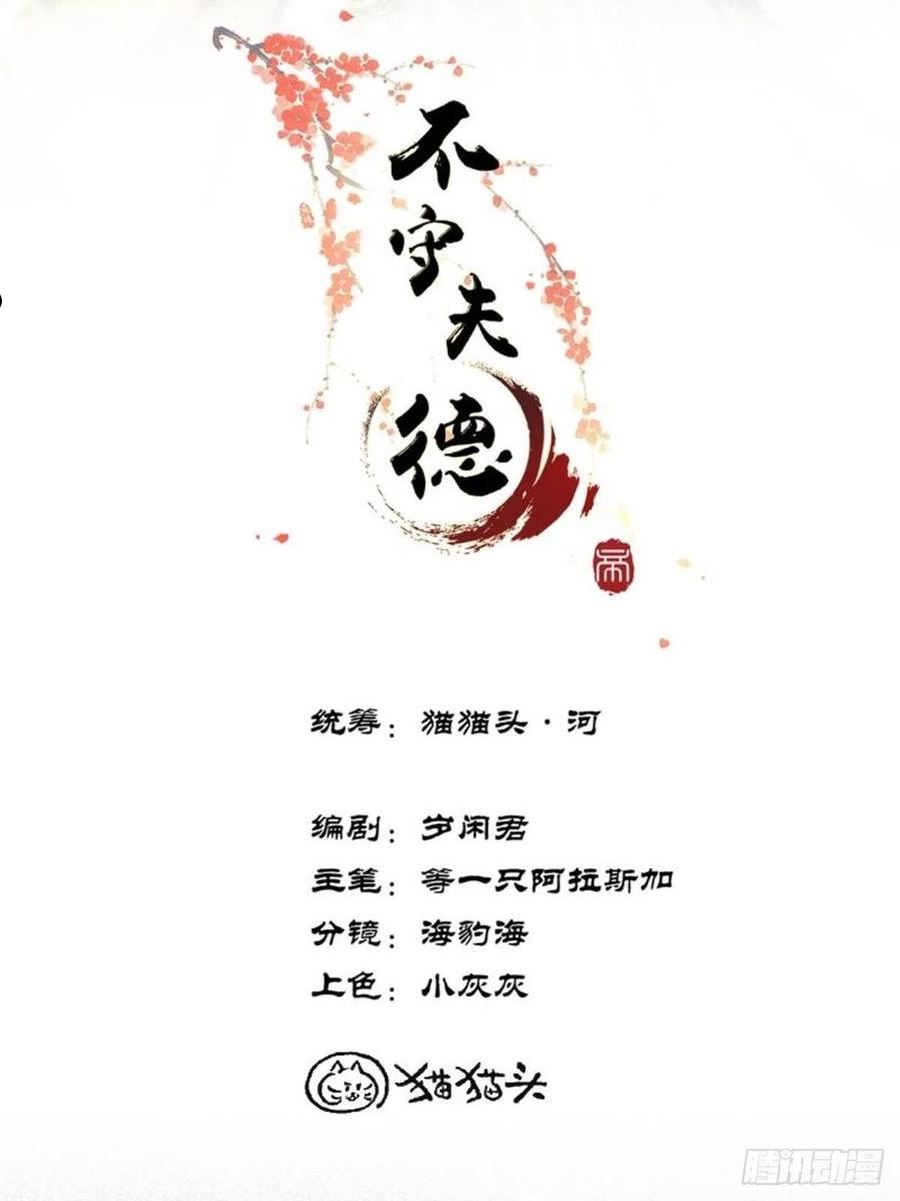 不守夫德
帝
统筹：猫猫头·河
编剧：岁闲君
主笔：等一只阿拉斯加
分镜：海豹海
上色：小灰灰
猫猫头
腾讯动漫